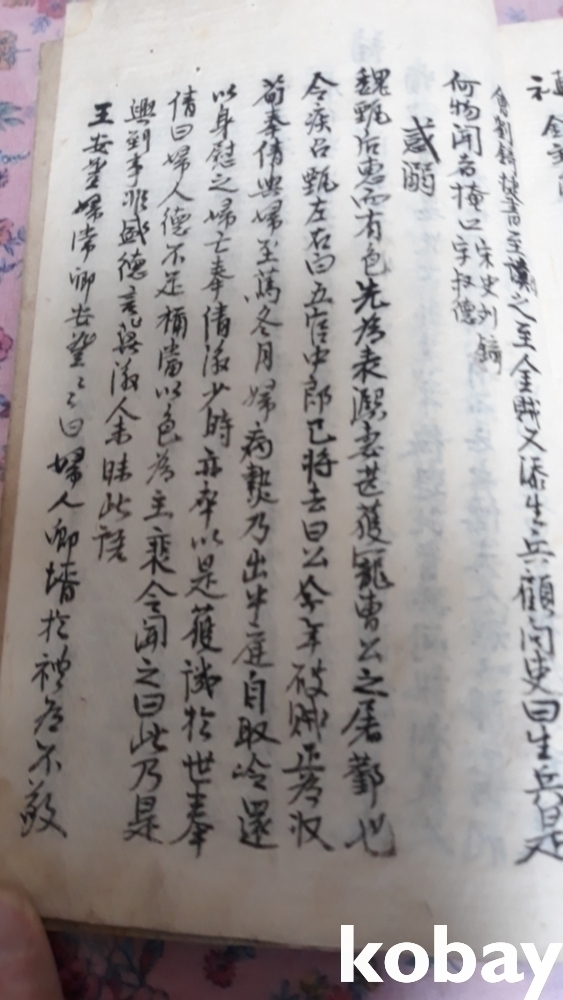 會劉錡捷書至讀之至金賊又添生兵顧問吏曰生兵是
何物聞者掩口 宋史列 錡 字叔德
惑溺
魏甄后惠而有色先爲袁熙妻甚獲寵曹公之屠鄴也
令疾召甄左右白五官中郎已將去曰公今年破賊正爲奴
荀奉倩與婦至篤冬月婦病熱乃出中庭自取冷還
以身慰之婦亡奉倩後少時亦卒以是獲譏於世奉
倩曰婦人德不足稱當以色爲主裴令聞之曰此乃是
興到事非盛德言冀後人未昧此語
王安豐婦常卿安豐豐曰婦人卿壻於禮爲不敬
kobay